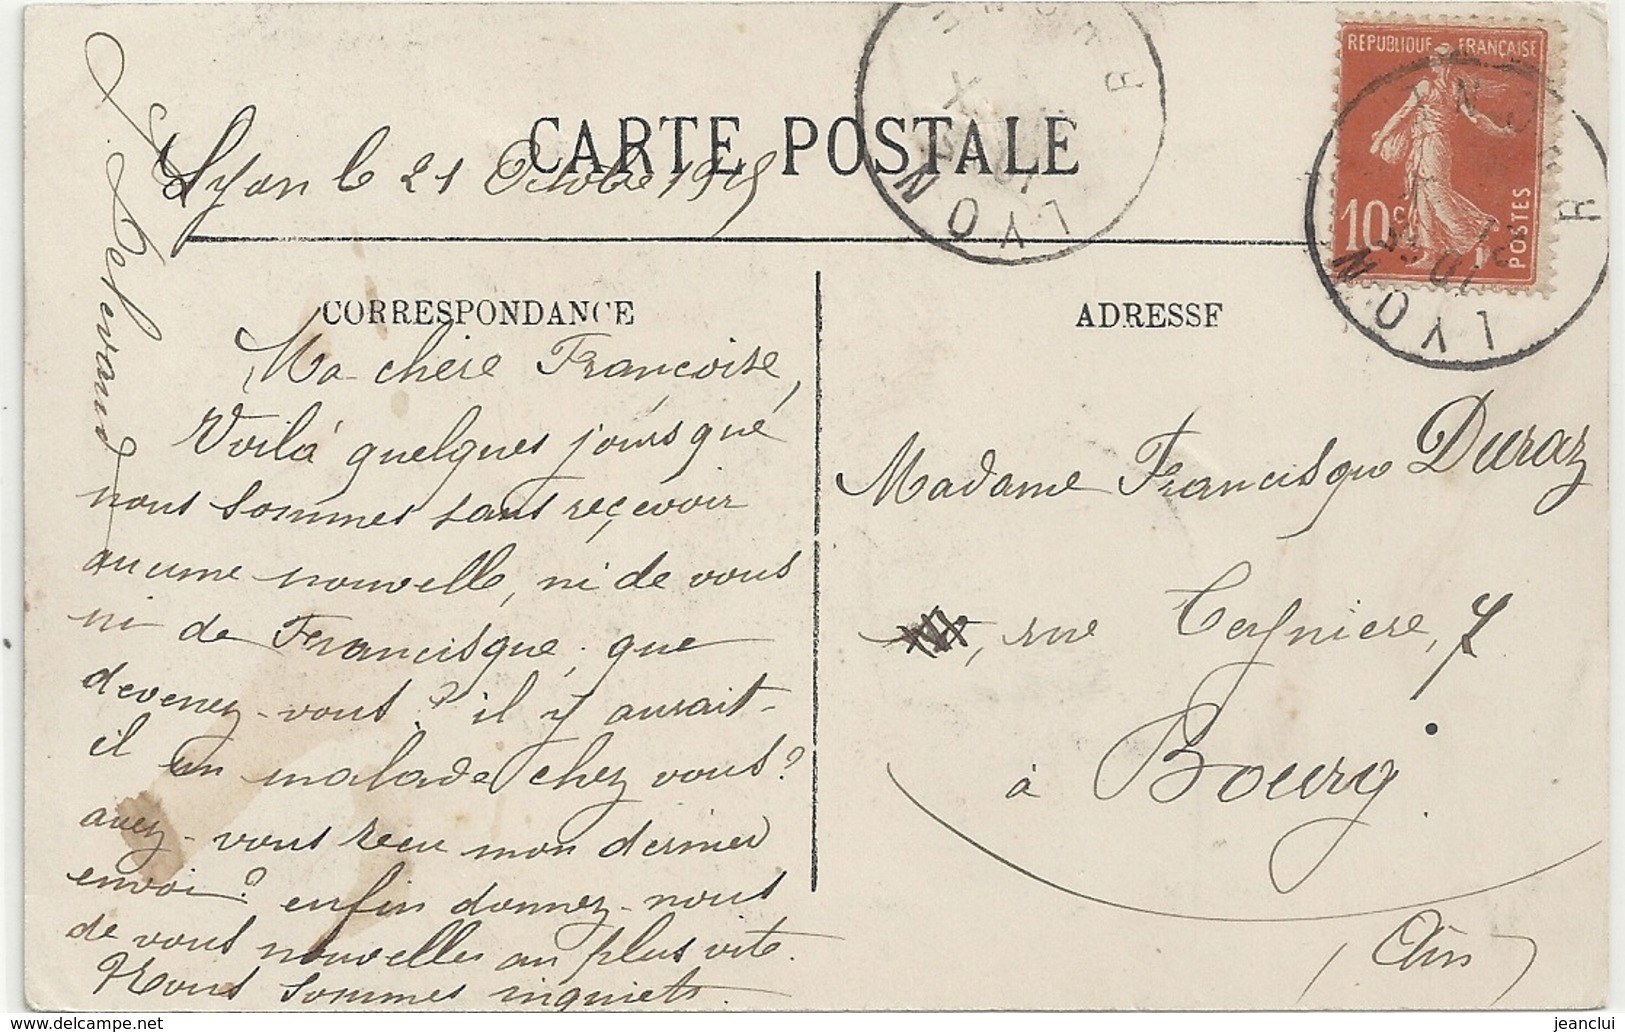 CARTE POSTALE
Lyon le 21 Octobre 1915
RÉPUBLIQUE FRANÇAISE
10c
POSTES
LYON
LYON
CORRESPONDANCE
ADRESSE
Ma chère Françoise,
Voilà quelques jours que
nous sommes sans reçevoir
aucune nouvelle, ni de vous
ni de Francisque, que
devenez-vous? il y aurait-
il un malade chez vous?
avez-vous reçu mon dernier
envoi? enfin donnez-nous
de vous nouvelles au plus vite.
Nous sommes inquiets.
Madame Francisque Duraz
, rue Teynière, 7
à Bourg
(Ain)
delcampe.net
jeanclui